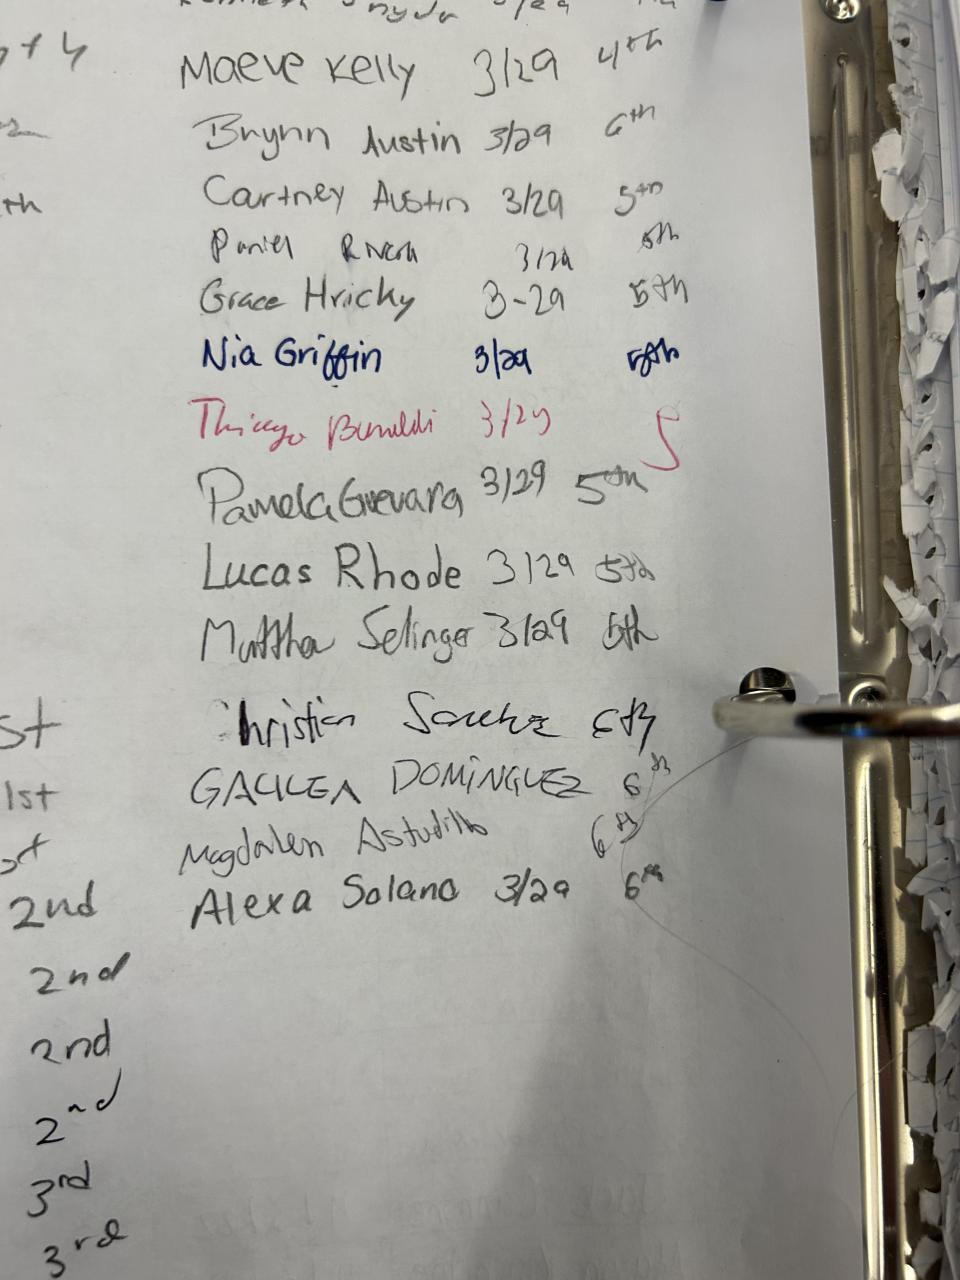 3/29
y + 4
Maeve Kelly 3/29 4th
Brynn Austin 3/29 6th
th
Courtney Austin 3/29 5th
Daniel 3/29 5th
Grace Hricky 3-29 5th
Nia Griffin 3/29 5th
Thiago 3/29 5
Pamela Guevara 3/29 5th
Lucas Rhode 3/29 5th
Matthew Selinger 3/29 5th
st
Christian Sanchez 6th
1st
GALILEA DOMINGUEZ 6th
st
Magdalen Astudillo 6th
2nd
Alexa Solano 3/29 6th
2nd
2nd
2nd
3rd
3rd